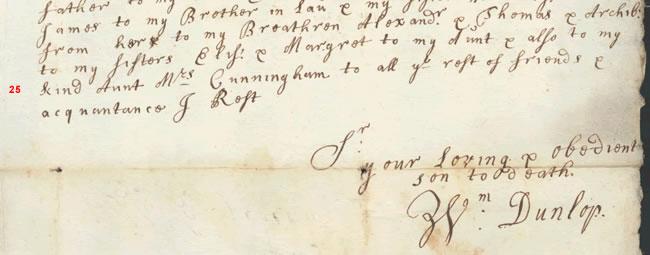 father to my
James to my Brother in Lau & my
from her to my Breathren Alexandr & Thomas & Archib:
to my sisters Elis: & Margret to my Aunt & also to my
25 kind Aunt Mrs Cunningham to all yr rest of friends &
acquantance I Rest
Sr
your loving & obedient
son to death.
Wm: Dunlop.